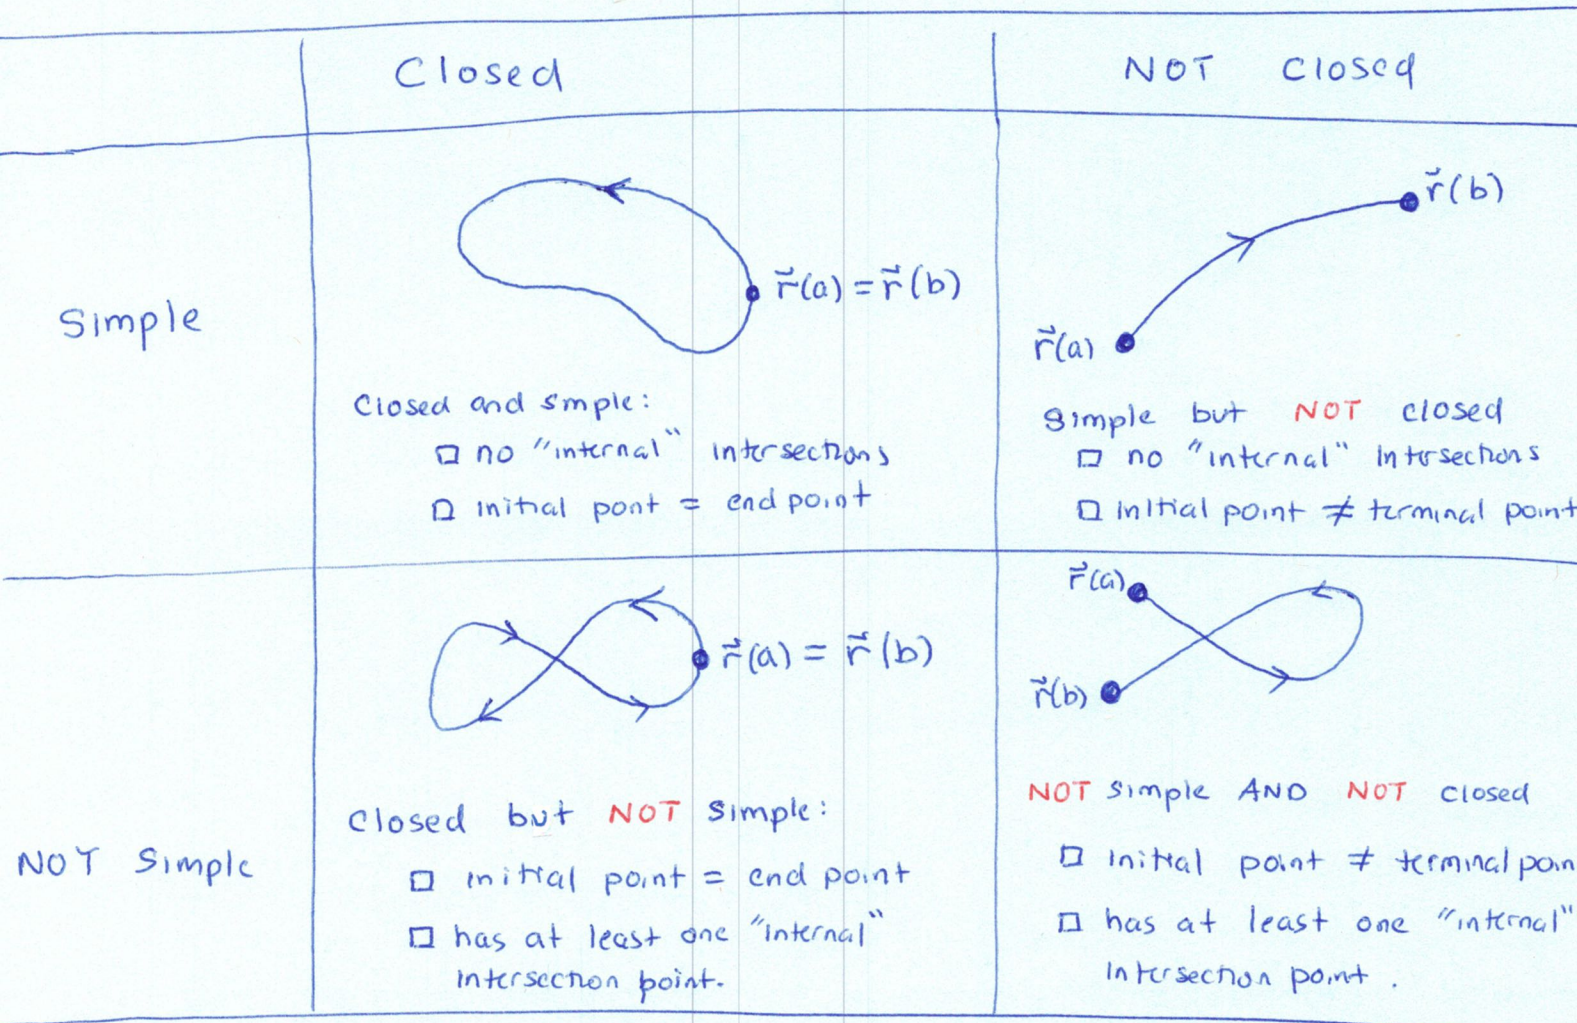 Closed NOT Closed
Simple
r⃗(a) = r⃗(b)
Closed and smple:
□ no "internal" intersections
□ initial pont = end point
r⃗(b)
r⃗(a)
Simple but NOT closed
□ no "internal" intersections
□ initial point ≠ terminal point
NOT Simple
r⃗(a) = r⃗(b)
Closed but NOT simple:
□ initial point = end point
□ has at least one "internal"
intersection point.
r⃗(a)
r⃗(b)
NOT simple AND NOT closed
□ initial point ≠ terminal poin
□ has at least one "internal"
intersection point.